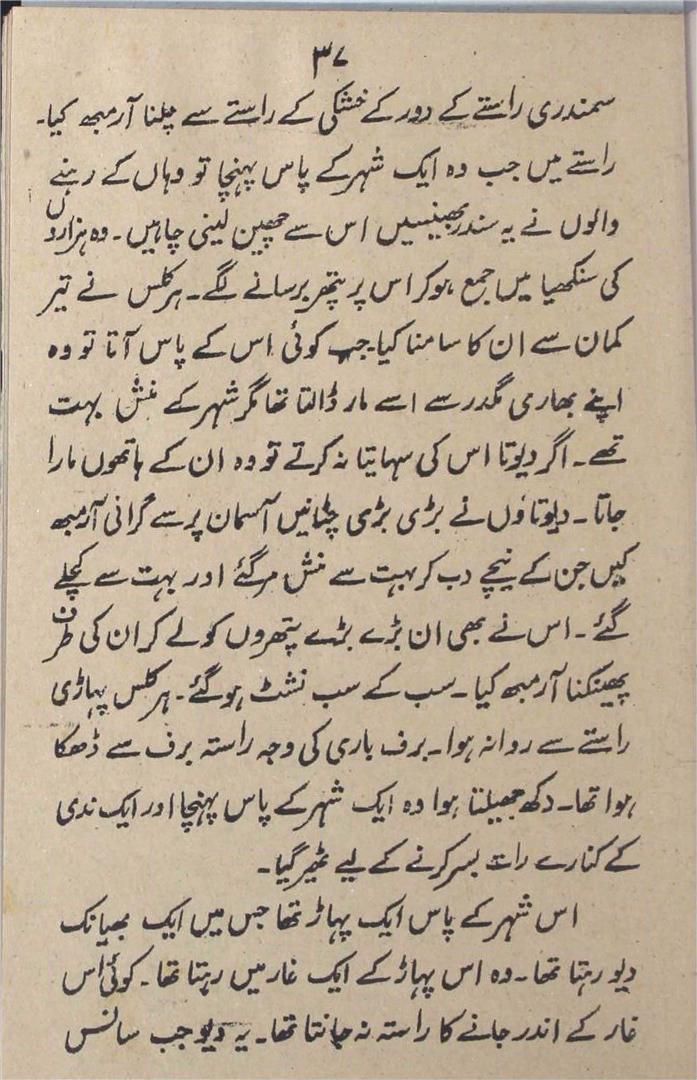 ۳۷
سمندری راستے کے دور کے خشکی کے راستے سے چلنا آرمبھ کیا۔
راستے میں جب وہ ایک شہر کے پاس پہنچا تو وہاں کے رہنے
والوں نے یہ سندر بھینسیں اس سے چھین لینی چاہیں۔ وہ ہزاروں
کی سنکھیا میں جمع ہو کر اس پر پتھر برسانے لگے۔ ہرکلس نے تیر
کمان سے ان کا سامنا کیا۔ جب کوئی اس کے پاس آتا تو وہ
اپنے بھاری مگدر سے اسے مار ڈالتا تھا مگر شہر کے منش بہت
تھے۔ اگر دیوتا اس کی سہایتا نہ کرتے تو وہ ان کے ہاتھوں مارا
جاتا۔ دیوتاؤں نے بڑی بڑی چٹانیں آسمان پر سے گرانی آرمبھ
کیں جن کے نیچے دب کر بہت سے منش مر گئے اور بہت سے کچلے
گئے۔ اس نے بھی ان بڑے بڑے پتھروں کو لے کر ان کی طرف
پھینکنا آرمبھ کیا۔ سب کے سب نشٹ ہو گئے۔ ہرکلس پہاڑی
راستے سے روانہ ہوا۔ برف باری کی وجہ راستہ برف سے ڈھکا
ہوا تھا۔ دکھ جھیلتا ہوا وہ ایک شہر کے پاس پہنچا اور ایک ندی
کے کنارے رات بسر کرنے کے لیے ٹھیر گیا۔
اس شہر کے پاس ایک پہاڑ تھا جس میں ایک بھیانک
دیو رہتا تھا۔ وہ اس پہاڑ کے ایک غار میں رہتا تھا۔ کوئی اس
غار کے اندر جانے کا راستہ نہ جانتا تھا۔ یہ دیو جب سانس